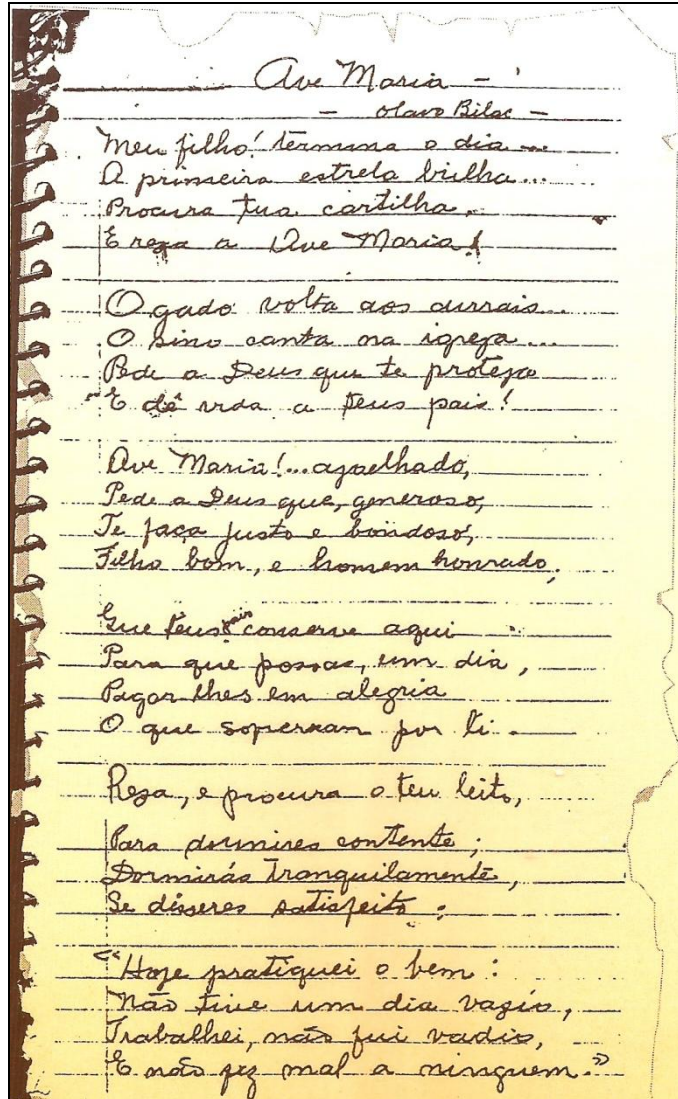 Ave Maria -
- Olavo Bilac -
Meu filho! termina o dia...
A primeira estrela brilha...
Procura tua cartilha,
E reza a Ave Maria!
O gado volta aos currais...
O sino canta na igreja...
Pede a Deus que te proteja
E dê vida a teus pais!
Ave Maria!... ajoelhado,
Pede a Deus que, generoso,
Te faça justo e bondoso,
Filho bom, e homem honrado;
Que teus pais conserve aqui
Para que possas, um dia,
Pagar lhes em alegria
O que sofreram por ti.
Reza, e procura o teu leito,
Para dormires contente;
Dormirás tranquilamente,
Se disseres satisfeito:
"Hoje pratiquei o bem:
Não tive um dia vazio,
Trabalhei, não fui vadio,
E não fez mal a ninguem."